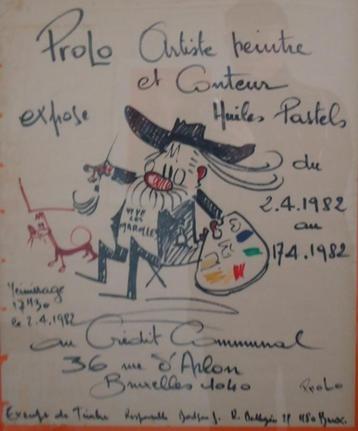 Prolo Artiste peintre
et Conteur
expose Huiles Pastels
du
2.4.1982
au
17.4.1982
VIVE LES
MAROLLES
17H30
le 2.4.1982
au Crédit Communal
36 rue d'Arlon
Bruxelles 1040
Prolo
Exempt de Timbre Responsable